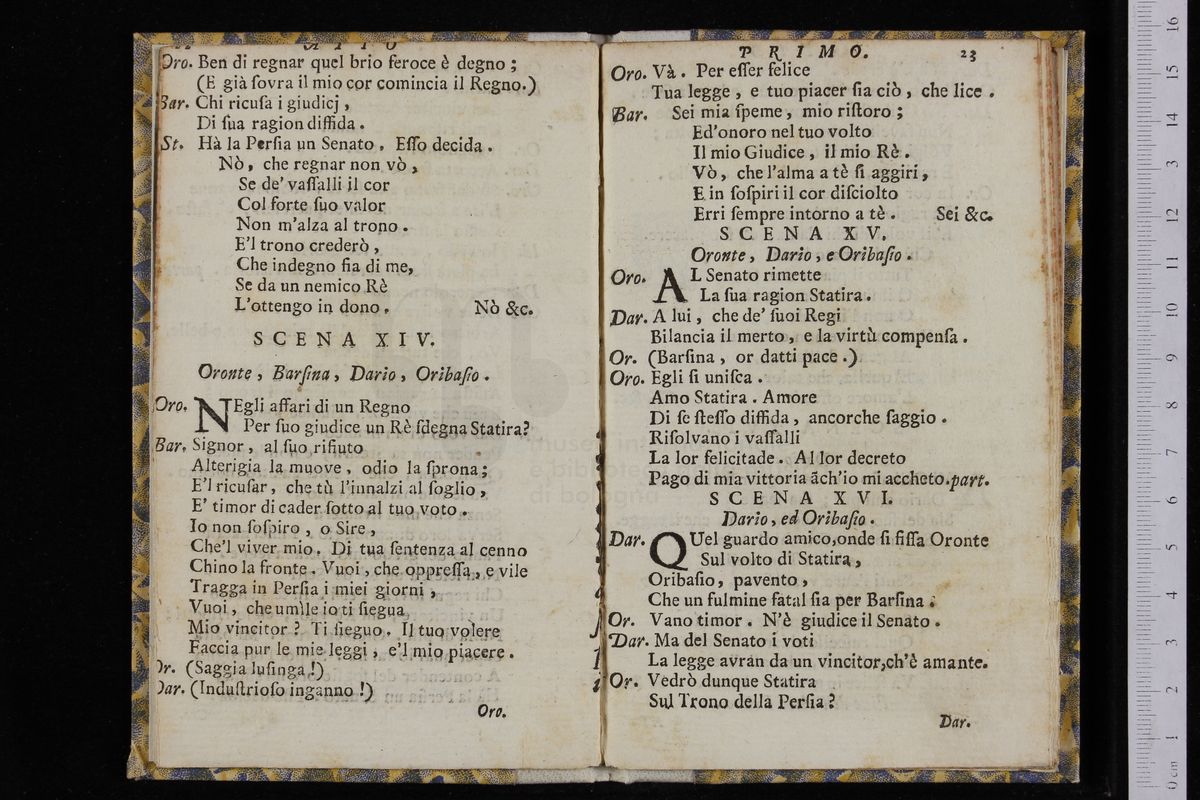 ATTO
Oro. Ben di regnar quel brio feroce è degno ;
(E già ſovra il mio cor comincia il Regno.)
Bar. Chi ricuſa i giudicj ,
Di ſua ragion diffida .
St. Hà la Perſia un Senato . Eſſo decida .
Nò , che regnar non vò ,
Se de' vaſſalli il cor
Col forte ſuo valor
Non m'alza al trono .
E'l trono crederò ,
Che indegno ſia di me,
Se da un nemico Rè
L'ottengo in dono . Nò &c.
SCENA XIV.
Oronte , Barſina , Dario , Oribaſio .
Oro. NEgli affari di un Regno
Per ſuo giudice un Rè ſdegna Statira?
Bar. Signor , al ſuo rifiuto
Alterigia la muove , odio la ſprona ;
E'l ricuſar , che tù l'innalzi al ſoglio ,
E' timor di cader ſotto al tuo voto .
Io non ſoſpiro , o Sire ,
Che'l viver mio . Di tua ſentenza al cenno
Chino la fronte . Vuoi , che oppreſſa , e vile
Tragga in Perſia i miei giorni ,
Vuoi , che umìle io ti ſiegua
Mio vincitor ? Ti ſieguo . Il tuo volere
Faccia pur le mie leggi , e'l mio piacere .
Or. (Saggia luſinga !)
Dar. (Induſtrioſo inganno !)
Oro.
PRIMO. 23
Oro. Và . Per eſſer felice
Tua legge , e tuo piacer ſia ciò , che lice .
Bar. Sei mia ſpeme , mio riſtoro ;
Ed'onoro nel tuo volto
Il mio Giudice , il mio Rè .
Vò , che l'alma a tè ſi aggiri ,
E in ſoſpiri il cor diſciolto
Erri ſempre intorno a tè . Sei &c.
SCENA XV.
Oronte , Dario , e Oribaſio .
Oro. AL Senato rimette
La ſua ragion Statira .
Dar. A lui , che de' ſuoi Regi
Bilancia il merto , e la virtù compenſa .
Or. (Barſina , or datti pace .)
Oro. Egli ſi uniſca .
Amo Statira . Amore
Di ſe ſteſſo diffida , ancorche ſaggio .
Riſolvano i vaſſalli
La lor felicitade . Al lor decreto
Pago di mia vittoria āch'io mi accheto. part.
SCENA XVI.
Dario , ed Oribaſio .
Dar. QUel guardo amico,onde ſi fiſſa Oronte
Sul volto di Statira ,
Oribaſio , pavento ,
Che un fulmine fatal ſia per Barſina .
Or. Vano timor . N'è giudice il Senato .
Dar. Ma del Senato i voti
La legge avran da un vincitor,ch'è amante.
Or. Vedrò dunque Statira
Sul Trono della Perſia ?
Dar.
0 cm 1 2 3 4 5 6 7 8 9 10 11 12 13 14 15 16